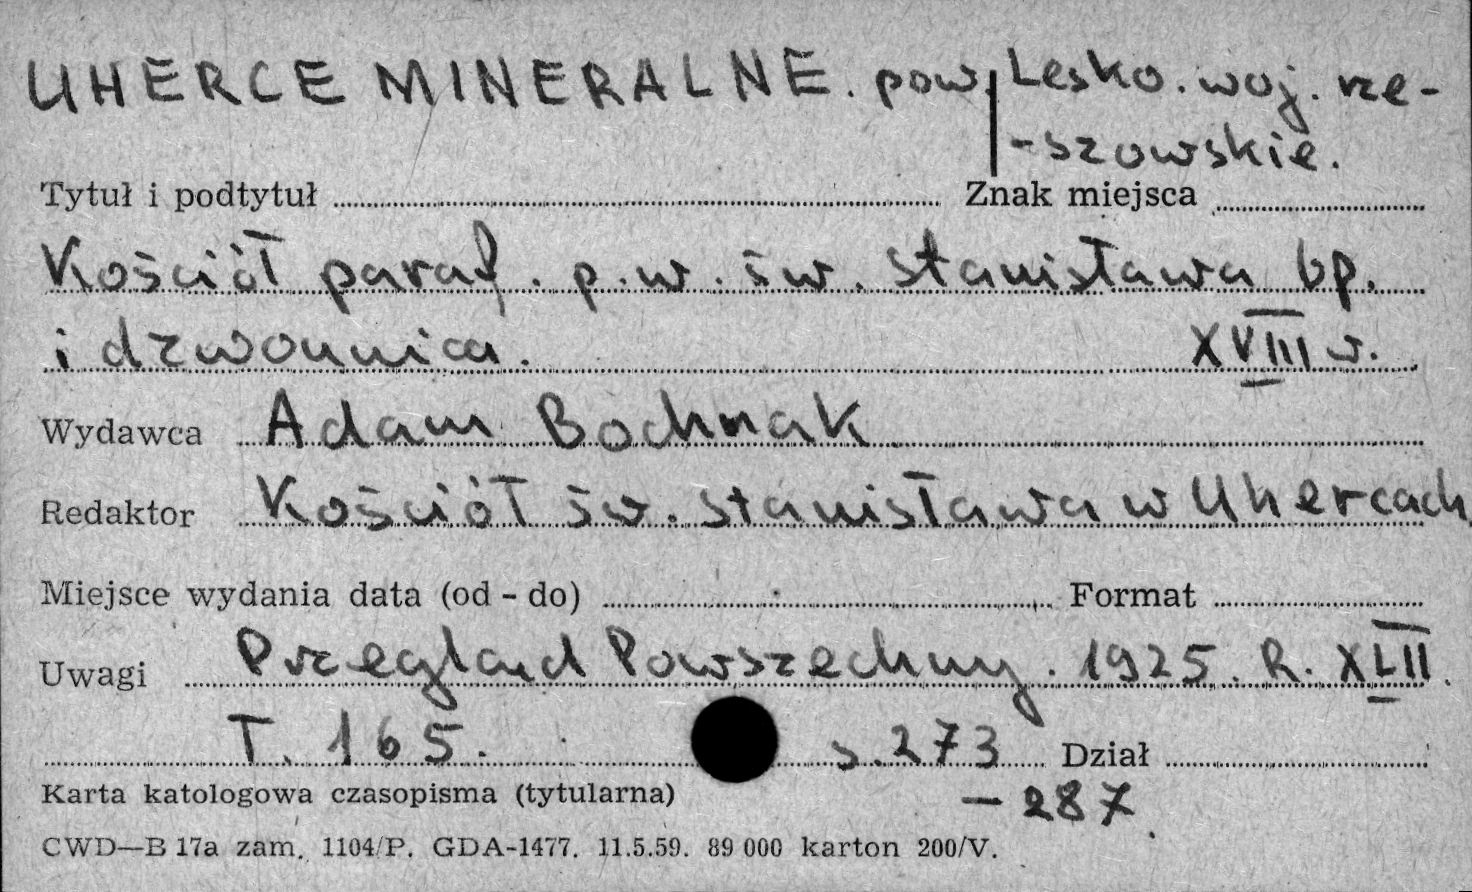 UHERCE MINERALNE. pow. Lesko. woj. rze-
-szowskie.
Tytuł i podtytuł Znak miejsca
Kościół paraf. p.w. św. Stanisława bp.
i dzwonnica. XVIII w.
Wydawca Adam Bochnak
Redaktor Kościół św. Stanisława w Uhercach
Miejsce wydania data (od - do) Format
Uwagi Przegląd Powszechny. 1925. R. XLII.
T. 165. s. 273 Dział
Karta katologowa czasopisma (tytularna) - 287.
CWD—B 17a zam. 1104/P. GDA-1477. 11.5.59. 89 000 karton 200/V.